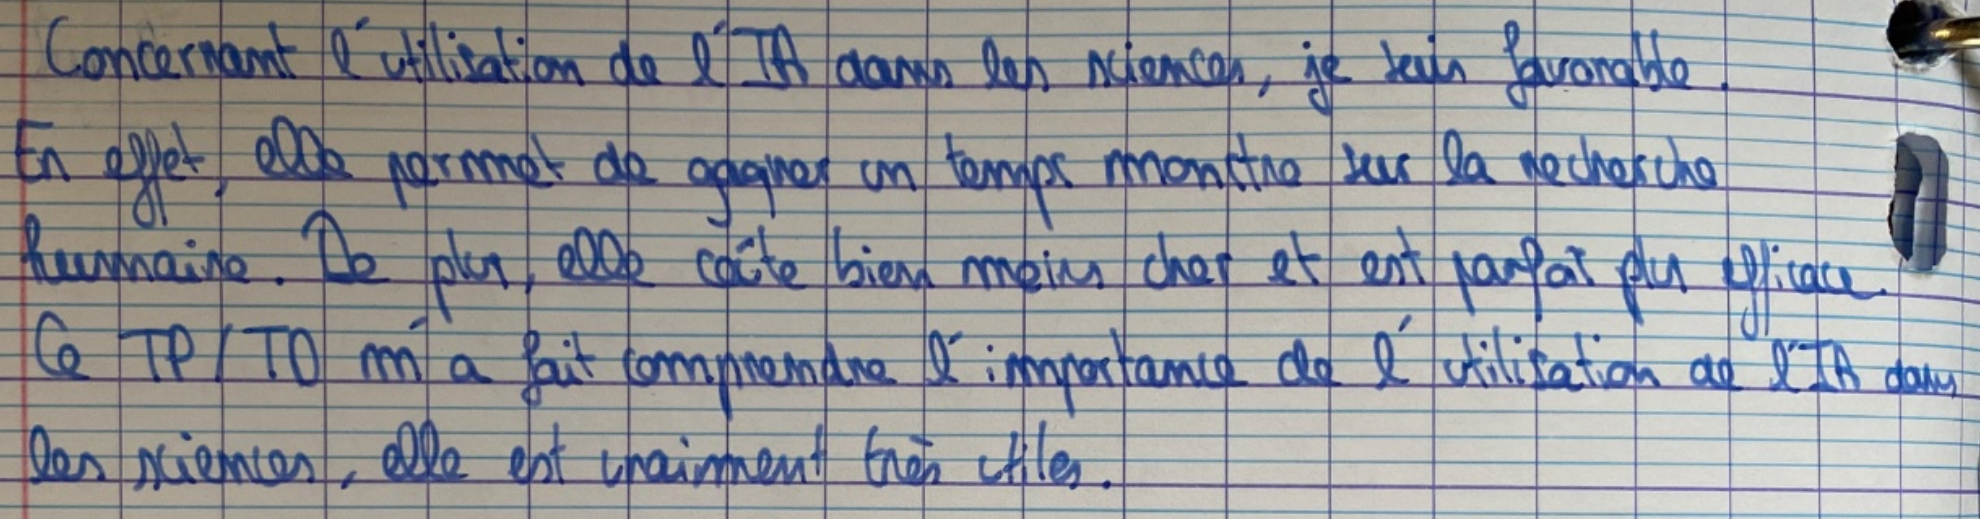 Concernant l'utilisation de l'IA dans les sciences, je suis favorable.
En effet, elle permet de gagner un temps monstre sur la recherche
humaine. De plus, elle coûte bien moins cher et est parfoi plus efficace.
Ce TP/TD m'a fait comprendre l'importance de l'utilisation de l'IA dans
les sciences, elle est vraiment très utiles.